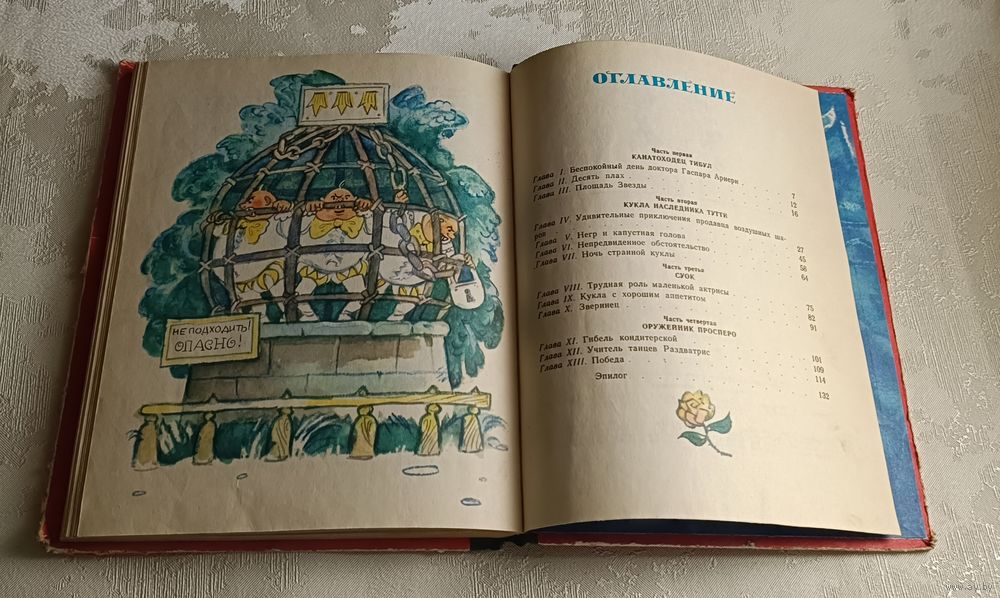 НЕ ПОДХОДИТЬ!
ОПАСНО!
ОГЛАВЛЕНИЕ
Часть первая
КАНАТОХОДЕЦ ТИБУЛ
Глава I. Беспокойный день доктора Гаспара Арнери . . 7
Глава II. Десять плах . . . . 12
Глава III. Площадь Звезды . . . . 16
Часть вторая
КУКЛА НАСЛЕДНИКА ТУТТИ
Глава IV. Удивительные приключения продавца воздушных ша-
ров . . . . 27
Глава V. Негр и капустная голова . . . . 45
Глава VI. Непредвиденное обстоятельство . . . . 58
Глава VII. Ночь странной куклы . . . . 64
Часть третья
СУОК
Глава VIII. Трудная роль маленькой актрисы . . . . 75
Глава IX. Кукла с хорошим аппетитом . . . . 82
Глава X. Зверинец . . . . 91
Часть четвертая
ОРУЖЕЙНИК ПРОСПЕРО
Глава XI. Гибель кондитерской . . . . 101
Глава XII. Учитель танцев Раздватрис . . . . 109
Глава XIII. Победа . . . . 114
Эпилог . . . . 132
www.ay.by